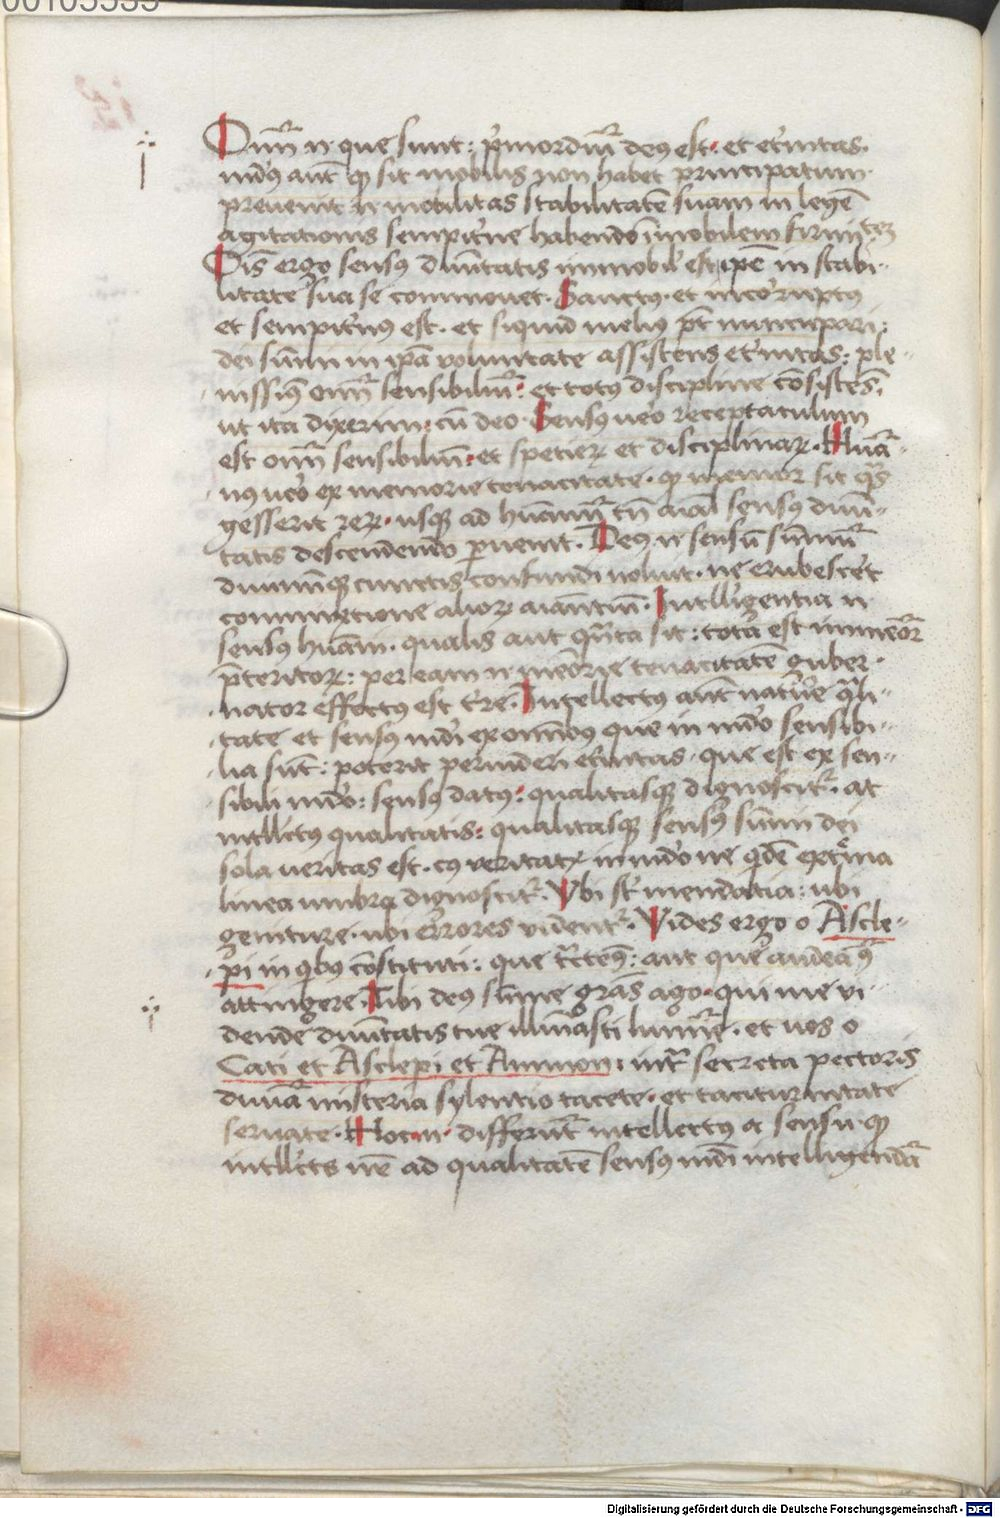 00105555
Om̅ı̅ n. que sunt: p̲rmordiu̅ deꝰ est. et et̕nitas.
mu̅dꝰ aut̅ ꝙ sit mobilis non habet principatum.
preuenit n. mobilitas stabilitate̅ suam in lege̅
agitationis sempit̕ne habendo i̅mobilem firmitez
Ois̅ ergo sensꝰ diui̅tatis immobil̕ est ip̅e in stabi-
litate sua se commouet. Sanctꝰ. et incor̕ruptꝰ
et sempit̕nꝰ est. et siquid meliꝰ p̅t nuncupari:
dei su̅mi in ip̅a voluntate assistens et̕nitas: ple-
nissiꝰ om̅ı̅ sensibiliu̅: et totꝰ discipline co̅siste̅s,
ut ita dixerim: cu̅ deo. Sensꝰ ueo receptaculum
est om̅ı̅ sensibiliu̅: et spetieꝝ et disciplinaꝝ. Hu̅a-
nꝰ ue̕o ex memorie tenacitate. ꝙ memor sit q̅s
gesserit reꝝ. usqꝫ ad hu̅anu̅ t̅n aial̅ sensꝰ diui-
tatis descendendo peruenit. Deꝰ n. sensu̅ su̅mu̅
diuinu̅qꝫ cunctis confundi noluit. ne erubesce̕t
commixtione alioꝝ aia̅ntiu̅. Intelligentia n.
sensꝰ hu̅ani. qualis aut qu̅ta sit: tota est in me̅or̅
p̅teritoꝝ: per eam n. me̅orie tenacitate̅ guber-
nator effectꝰ est t̕re̅. Intellectꝰ aut̅ nature q̅li-
tate et sensꝰ mu̅di ex omnibꝰ que in mu̅do sensibi-
lia su̅t: poterit peruideri et̕nitas. que est ex sen-
sibili mu̅do: sensꝰ datꝰ: qualitasqꝫ dignoscit̕. at
intllectꝰ qualitatis: qualitasqꝫ sensꝰ su̅mi dei
sola ueritas est. cꝰ ueritat̕ in mu̅do ne q̕de̅ extima
linea umbra dignoscit̕. Vbi st̅ mendatia: ubi
geniture. ubi errores uident̕. Vides ergo o Ascle-
pi in q̕bꝰ co̅stituti: que t̅cte̅ꝰ: aut que audea̅ꝰ
attingere. Tibi deꝰ su̅me gra̅s ago. qui me vi-
dende diui̅tatis tue illu̅iasti lum̅e. et uos o
Tati et Asclepi et Ammon: int̕ secreta pectoris
diui̅a misteria sylentio tacete. et taciturnitate
seruate. Hoc n. differu̅t intellectꝰ a sensu ꝙ
intll̕cts n̅r ad qualitate̅ sensꝰ mu̅di intelligenda̅
Digitalisierung gefördert durch die Deutsche Forschungsgemeinschaft - DFG